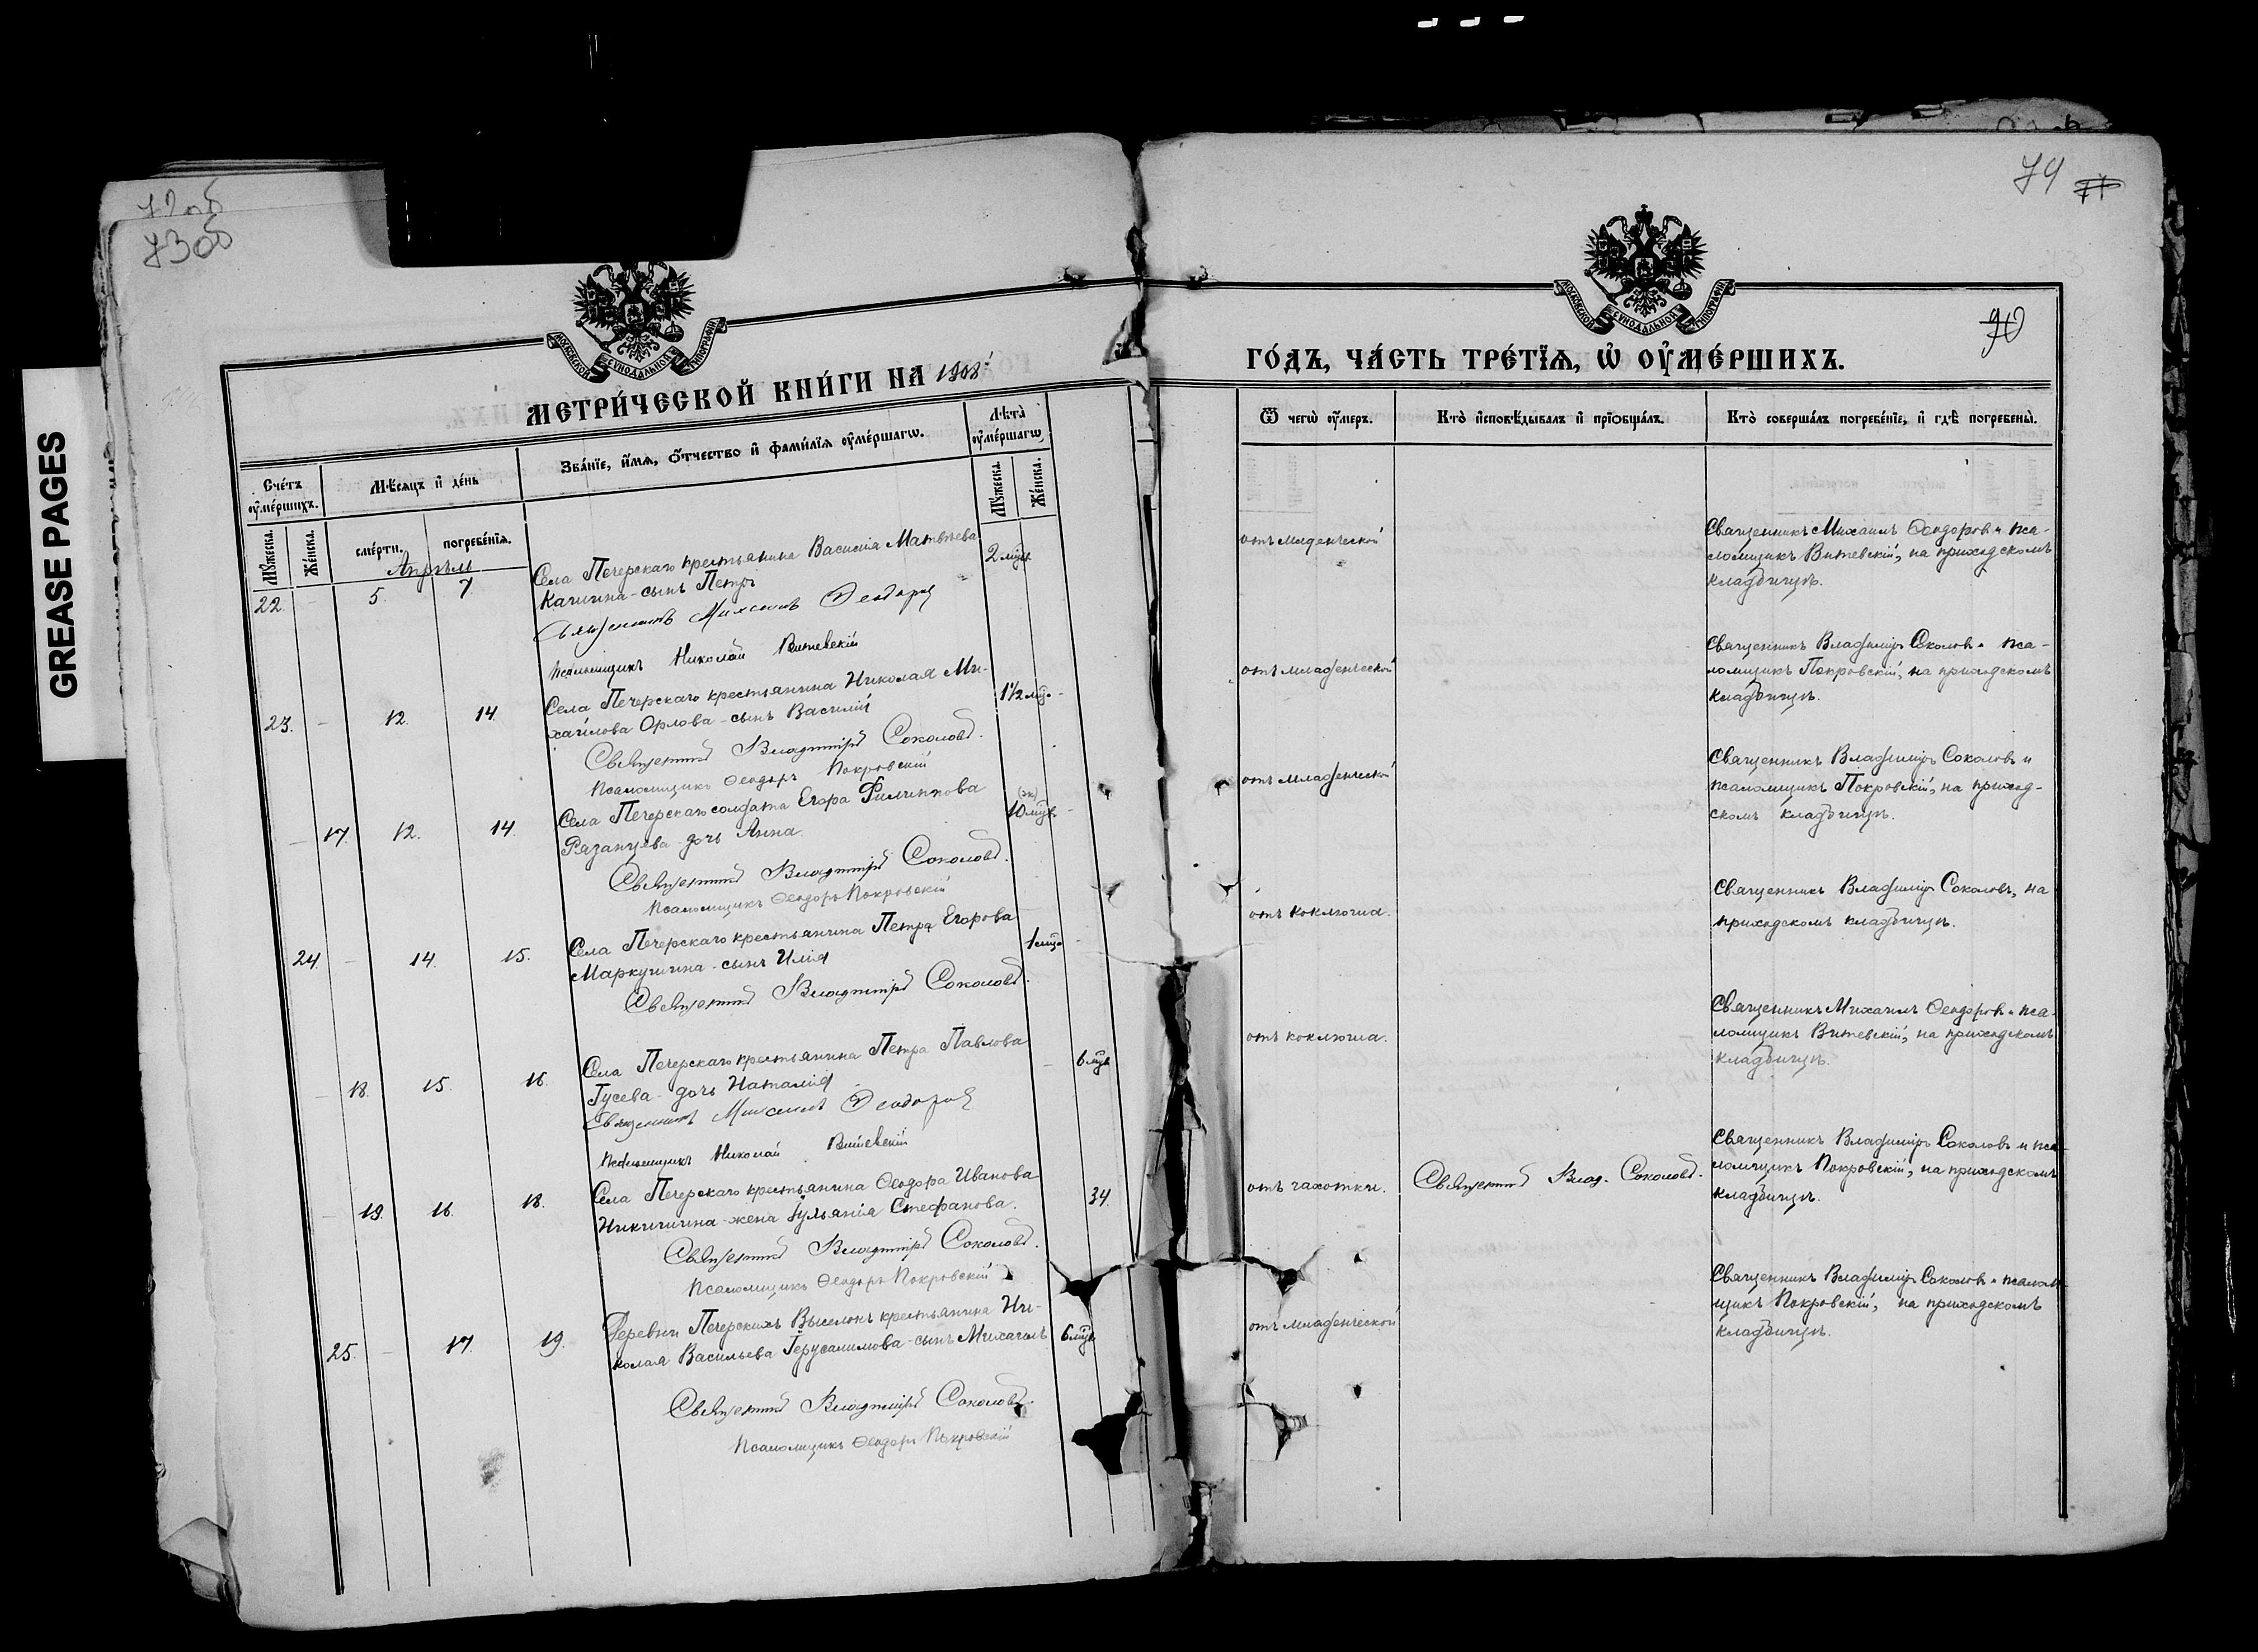 GREASE PAGES
73об
74
МОСКОВСКОЙ СУНОДАЛЬНОЙ ТИПОГРАФІИ
МОСКОВСКОЙ СУНОДАЛЬНОЙ ТИПОГРАФІИ
МЕТРИ́ЧЕСКОЙ КНИ́ГИ НА 1908
ГО́ДЪ, ЧА́СТЬ ТРЕ́ТІѦ, Ѡ҆ ОУ҆МЕ́РШИХЪ.
Сче́тъ оу҆ме́ршихъ.
Мѣ́сѧцъ и҆ де́нь
Зва́нїе, и҆́мѧ, ѻ҆́тчество и҆ фами́лїѧ оу҆ме́ршагѡ.
Лѣ́та оу҆ме́ршагѡ.
Мꙋ́жеска.
Же́нска.
сме́рти.
погребе́нїѧ.
Мꙋ́жеска.
Же́нска.
Ѿ чегѡ̀ оу҆́меръ.
Кто̀ и҆сповѣ́дывалъ и҆ прїѡбща́лъ.
Кто̀ соверша́лъ погребе́нїе, и҆ гдѣ̀ погребены̀.
Апрѣль
22. – 5. 7
Села Печерскаго крестьянина Василія Матвѣева
Качина - сынъ Петръ
2 мѣс.
Священникъ Михаилъ Ѳеодоровъ
Псаломщикъ Николай Витевскій
отъ младенческой
Священникъ Михаилъ Ѳеодоровъ и пса-
ломщикъ Витевскій, на приходскомъ
кладбищѣ.
23. – 12. 14.
Села Печерскаго крестьянина Николая Ми-
хайлова Орлова - сынъ Василій
1½ мѣс.
Священникъ Владиміръ Соколовъ.
Псаломщикъ Ѳеодоръ Покровскій
отъ младенческой
Священникъ Владиміръ Соколовъ и пса-
ломщикъ Покровскій, на приходскомъ
кладбищѣ.
– 17. 12. 14.
Села Печерскаго солдата Егора Филиппова
Рязанцева дочь Анна
(жк)
10 мѣс.
Священникъ Владиміръ Соколовъ.
Псаломщикъ Ѳеодоръ Покровскій
отъ младенческой
Священникъ Владиміръ Соколовъ и
псаломщикъ Покровскій, на приход-
скомъ кладбищѣ.
24. – 14. 15.
Села Печерскаго крестьянина Петра Егорова
Маркушина - сынъ Илія
1 мѣс.
Священникъ Владиміръ Соколовъ.
отъ коклюша.
Священникъ Владиміръ Соколовъ, на
приходскомъ кладбищѣ.
– 18. 15. 16.
Села Печерскаго крестьянина Петра Павлова
Гусева - дочь Наталія
– 6 мѣс.
Священникъ Михаилъ Ѳеодоровъ
Псаломщикъ Николай Витевскій
отъ коклюша.
Священникъ Михаилъ Ѳеодоровъ и пса-
ломщикъ Витевскій, на приходскомъ
кладбищѣ.
– 19. 16. 18.
Села Печерскаго крестьянина Ѳеодора Иванова
Никишина - жена Іуліанія Стефанова.
34.
Священникъ Владиміръ Соколовъ.
Псаломщикъ Ѳеодоръ Покровскій
отъ чахотки.
Священникъ Влад. Соколовъ.
Священникъ Владиміръ Соколовъ и пса-
ломщикъ Покровскій, на приходскомъ
кладбищѣ.
25. – 17. 19.
Деревни Печерскихъ Выселокъ крестьянина Ни-
колая Васильева Іерусалимова - сынъ Михаилъ
6 мѣс.
Священникъ Владиміръ Соколовъ.
Псаломщикъ Ѳеодоръ Покровскій
отъ младенческой
Священникъ Владиміръ Соколовъ и псалом-
щикъ Покровскій, на приходскомъ
кладбищѣ.